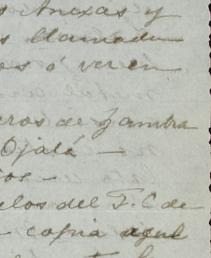 s Anexas y
s llamada
os ó ver en
eros de Zambra
Ojalá —
os —
elos del F. C de
— copia aquel